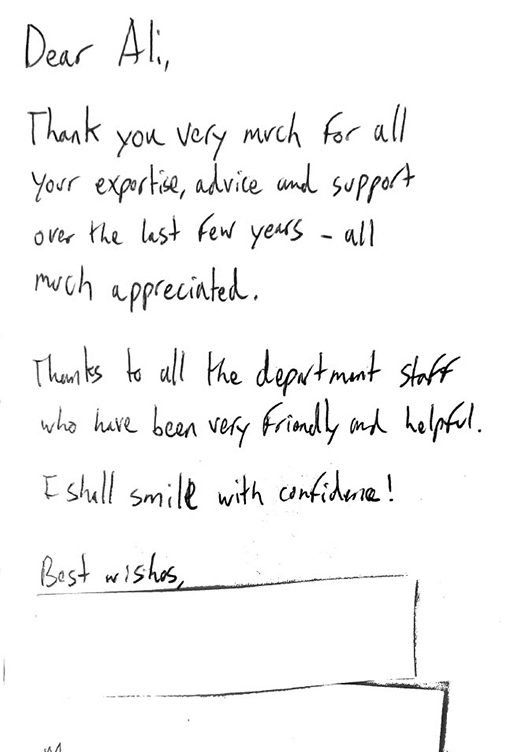 Dear Ali,
Thank you very much for all
your expertise, advice and support
over the last few years - all
much appreciated.
Thanks to all the department staff
who have been very friendly and helpful.
I shall smile with confidence!
Best wishes,